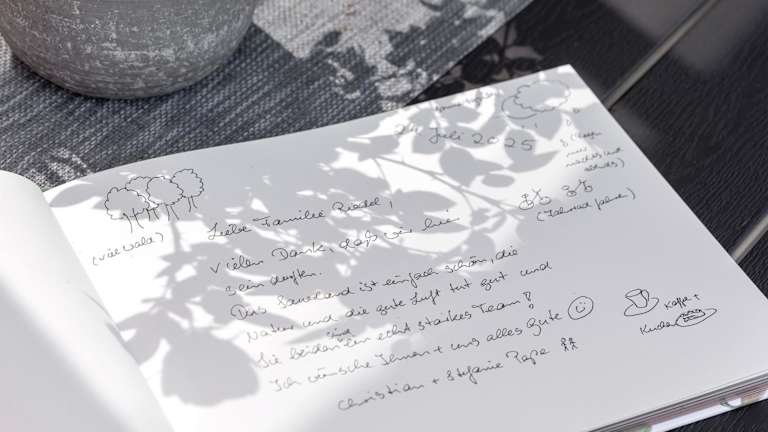 24 Juli 2025
(Regen
nur
nachts und
abends)
(viel Wald)
Liebe Familie Riedel,
(Fahrrad fahren)
Vielen Dank, daß wir hier
sein durften.
Das Sauerland ist einfach schön, die
Natur und die gute Luft tut gut und
Sie beiden sind ein echt starkes Team!
Ich wünsche Ihnen + uns alles Gute
Kaffe +
Kuchen
Christian + Stefanie Pape